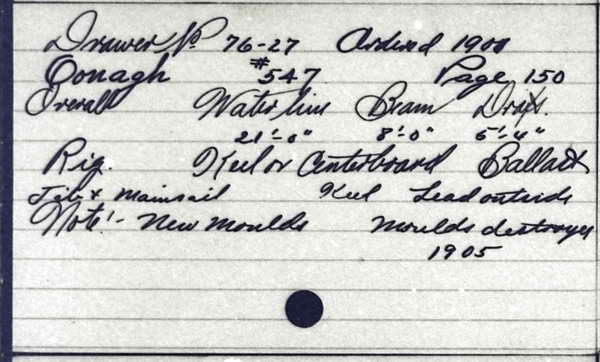 Drawer No. 76-27 Ordered 1900
Oonagh #547 Page 150
Overall Water line Beam Draft.
21'-0" 8'-0" 5'-4"
Rig. Keel or Centerboard Ballast
Jib & Mainsail Keel Lead outside
Note:- New moulds Moulds destroyed
1905